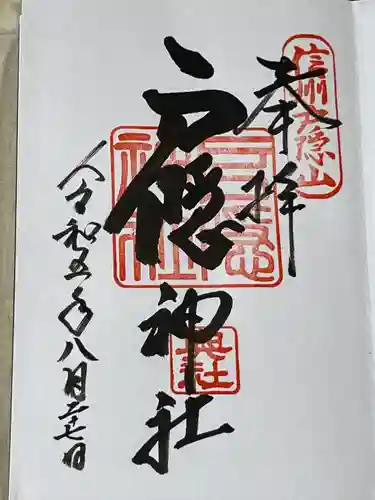 奉拝
信州戸隠山
戸隠神社
戸隠神社
奥社
令和五年八月二十七日